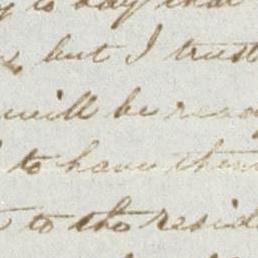 to say that
but I trust
will be read
to have them
to the resid